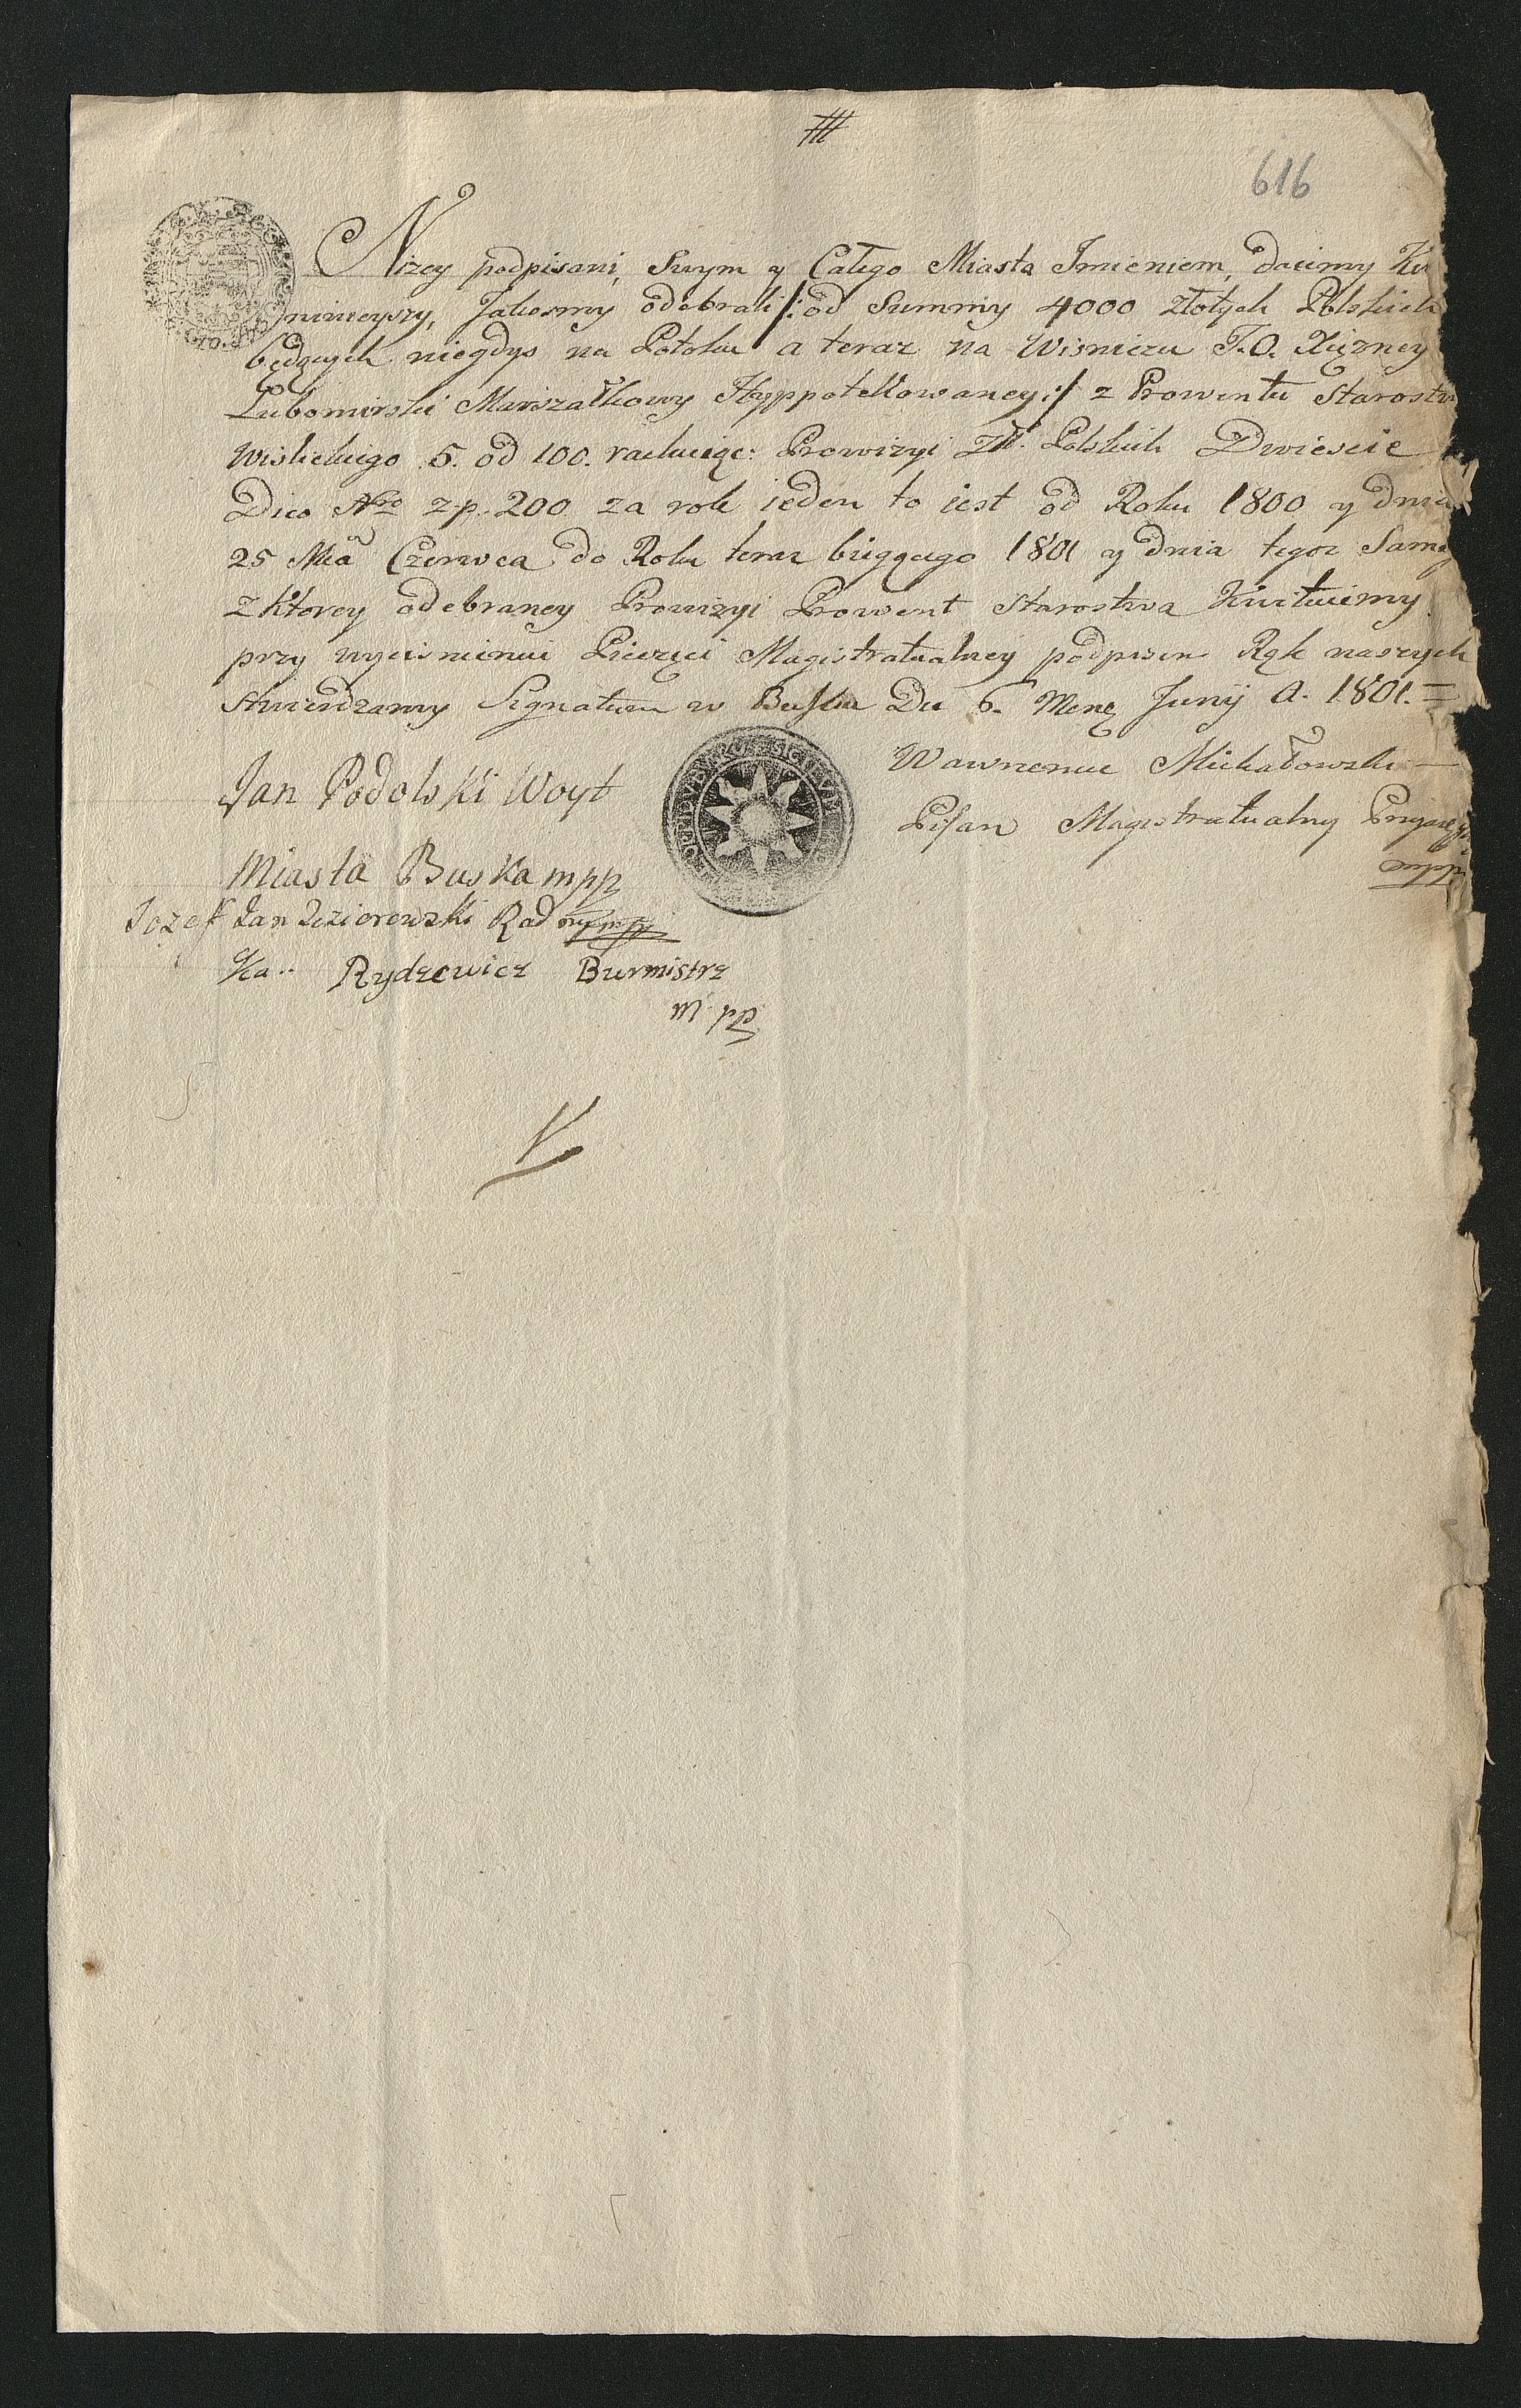 616
Nizey podpisani, Swym y Całego Miasta Imieniem, daiemy
ninieyszy, Jakosmy odebrali /: od Summy 4000 złotych Polskich
będących niegdys na Potoku a teraz na Wisniczu J.O. Xiężney
Lubomirski Marszałkowy Hyppotekowaney :/ z Prowentu Starostw
Wislickiego 5. od 100. rachuiąc: Prowizyi Zł. Polskich Dwiescie
Dico Nro z.p. 200 za rok ieden to iest od Roku 1800 y dnia
25 Mca Czerwca do Roku teraz bieżącego 1801 y dnia tegoz
z Ktorey odebraney Prowizyi Prowent Starostwa Kwituiemy
przy wycisnieniu Pieczęci Magistratualney podpisem Rąk naszych
stwierdzamy Signatum w Busku Die 6. Mene Junij A. 1801. =
Jan Podolski Woyt
Miasta Buska mpp
Wawrzeniec Michałowski
Pisarz Magistratualny Przysięgły
mpp
Jozef Jan Jeziorowski Rad mpp
Ka.. Rydzewicz Burmistrz
m pp